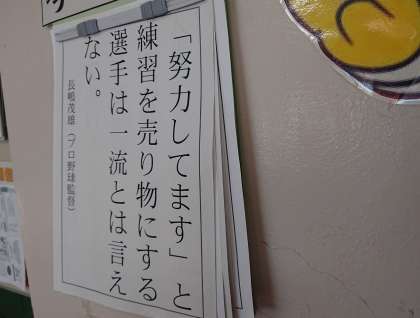 「努力してます」と
練習を売り物にする
選手は一流とは言え
ない。
長嶋茂雄（プロ野球監督）